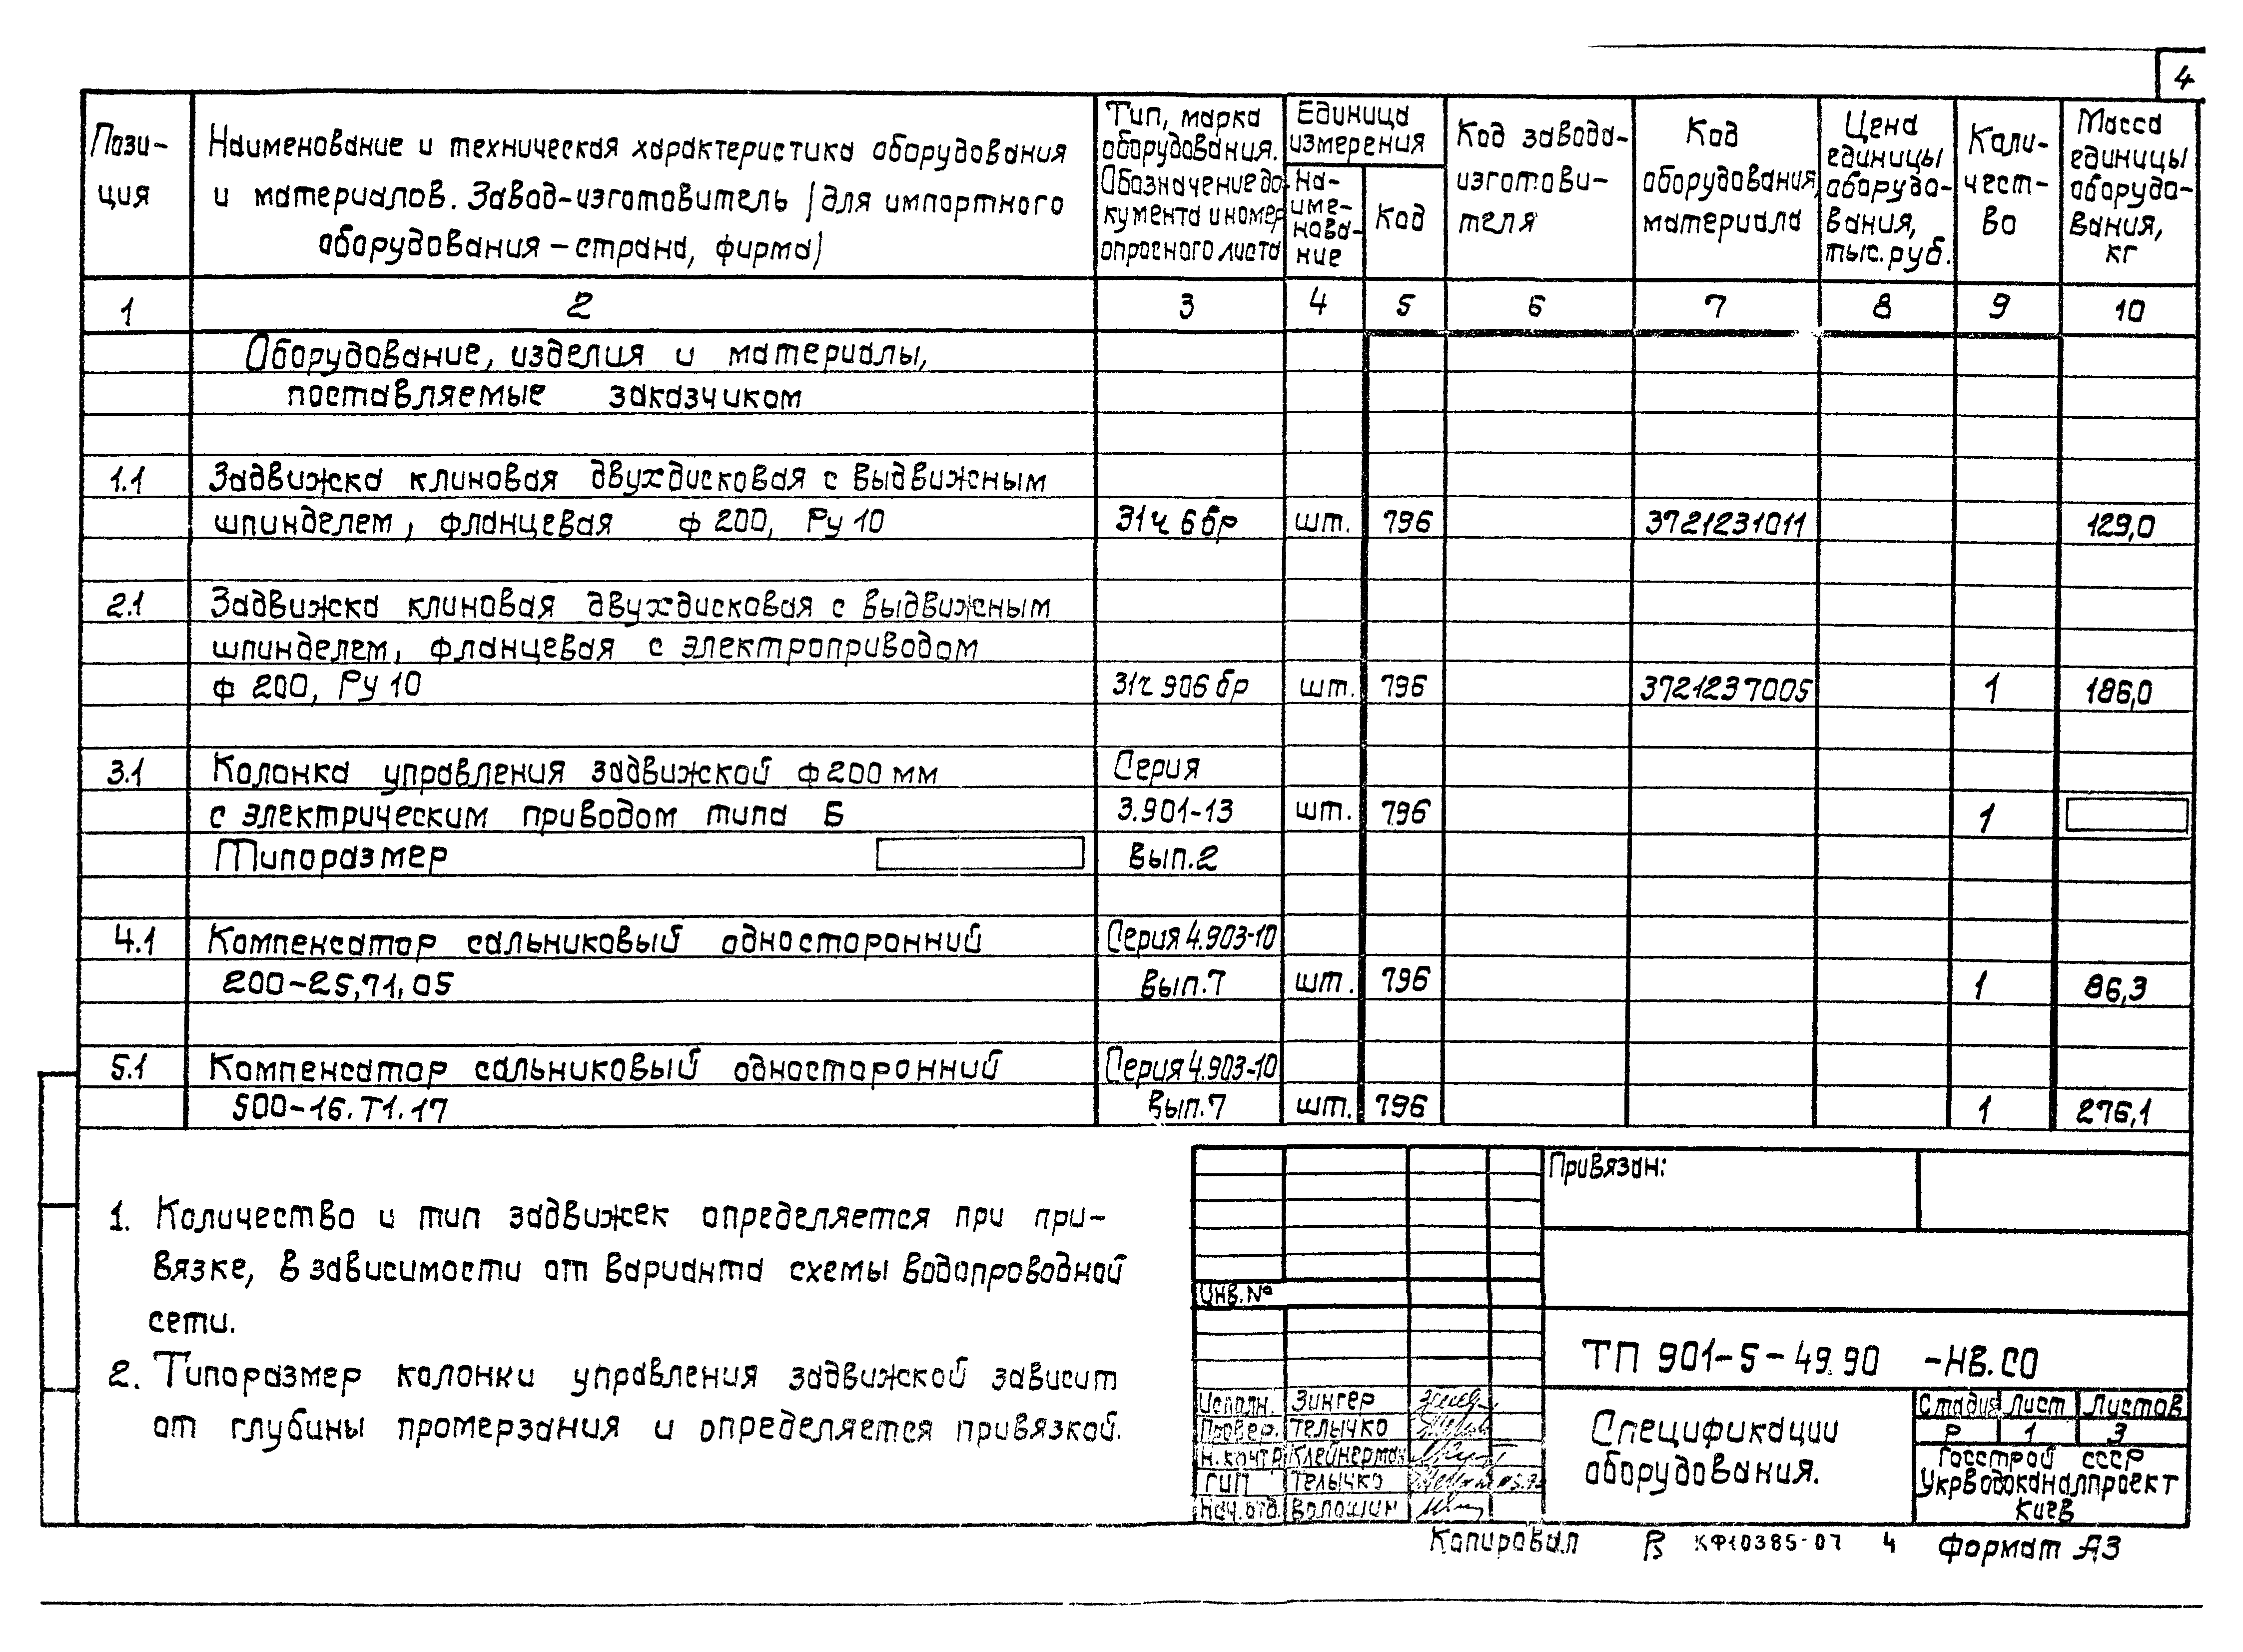 4
Пози-
ция
Наименование и техническая характеристика оборудования
и материалов. Завод-изготовитель (для импортного
оборудования – страна, фирма)
Тип, марка
оборудования.
Обозначение до-
кумента и номер
опросного листа
Единица
измерения
На-
име-
нова-
ние
Код
Код завода-
изготови-
теля
Код
оборудования,
материала
Цена
единицы
оборудо-
вания,
тыс. руб.
Коли-
чест-
во
Масса
единицы
оборудо-
вания,
кг
1 2 3 4 5 6 7 8 9 10
Оборудование, изделия и материалы,
поставляемые заказчиком
1.1 Задвижка клиновая двухдисковая с выдвижным
шпинделем, фланцевая ф 200, Ру 10 31ч 6 бр шт. 796 3721231011 129,0
2.1 Задвижка клиновая двухдисковая с выдвижным
шпинделем, фланцевая с электроприводом
ф 200, Ру 10 31ч 906 бр шт. 796 3721237005 1 186,0
3.1 Колонка управления задвижкой ф 200 мм Серия
с электрическим приводом типа Б 3.901-13 шт. 796 1
Типоразмер вып. 2
4.1 Компенсатор сальниковый односторонний Серия 4.903-10
200-25,Т1,05 вып. 7 шт. 796 1 86,3
5.1 Компенсатор сальниковый односторонний Серия 4.903-10
500-16.Т1.17 вып. 7 шт. 796 1 276,1
1. Количество и тип задвижек определяется при при-
вязке, в зависимости от варианта схемы водопроводной
сети.
2. Типоразмер колонки управления задвижкой зависит
от глубины промерзания и определяется привязкой.
Привязан:
Инв. №
ТП 901-5-49.90 -НВ.СО
Исполн. Зингер
Провер. Телычко
Н. контр Клейнерман
ГИП Телычко
Нач. отд. Волошин
Спецификации
оборудования.
Стадия Лист Листов
Р 1 3
Госстрой СССР
Укрводоканалпроект
Киев
Копировал КФ10385-07 4 Формат А3